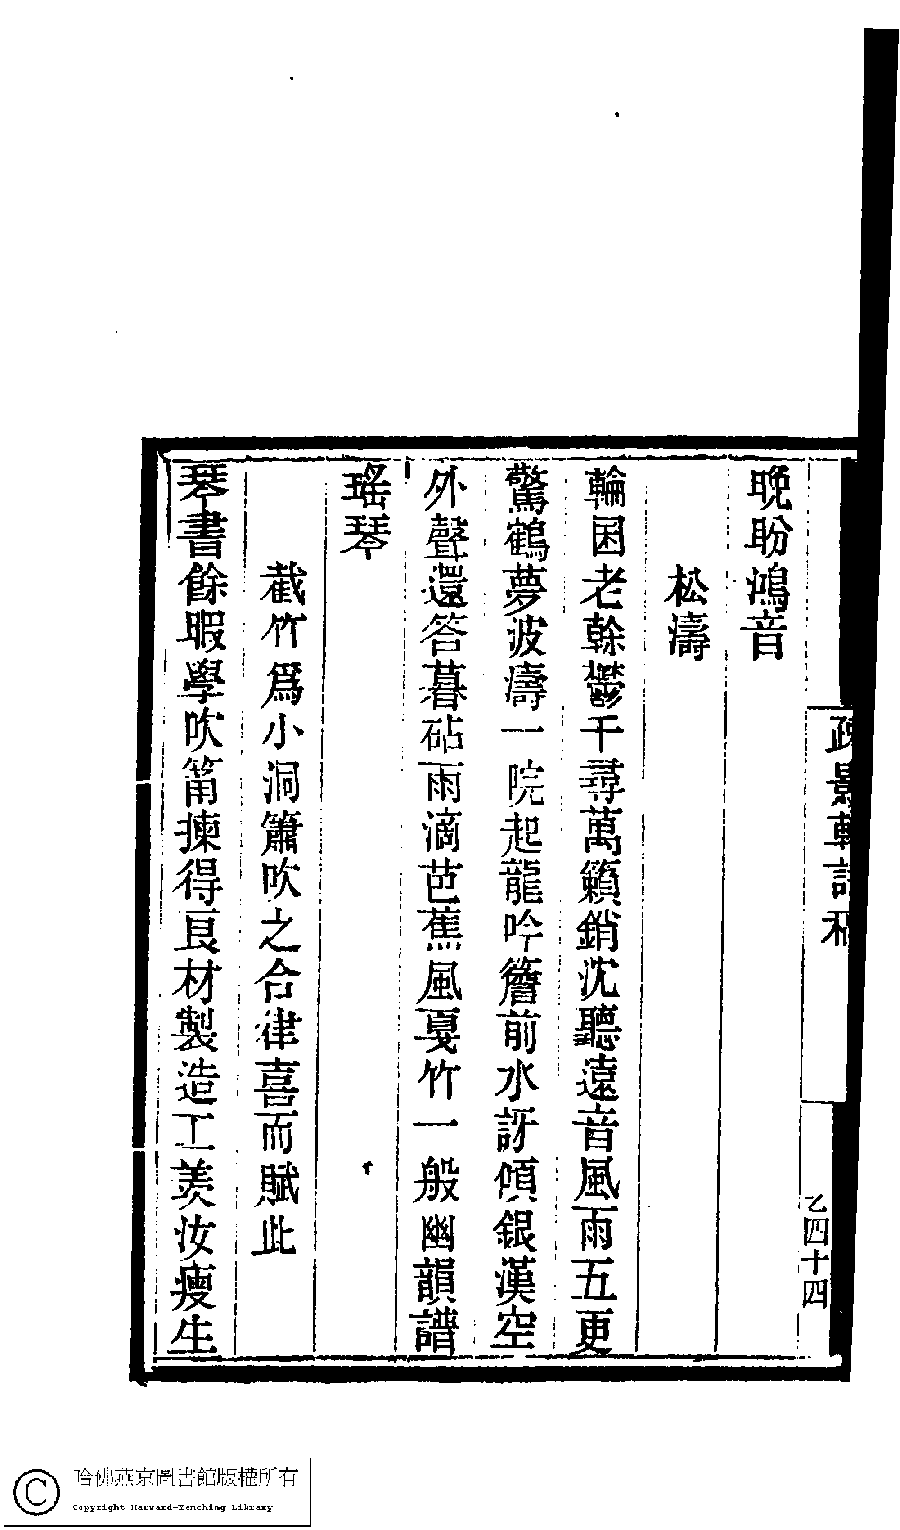 晚盼鴻音
松濤
輪囷老榦鬱千尋萬籟銷沈聽遠音風雨五更
驚鶴夢波濤一院起龍吟簷前水訝傾銀漢空
外聲還答暮砧雨滴芭蕉風戛竹一般幽韻譜
瑤琴
截竹爲小洞簫吹之合律喜而賦此
琴書餘暇學吹簫揀得良材製造工羨汝瘦生
疎影軒詩稿
乙四十四
哈佛燕京圖書館版權所有
Copyright Harvard-Yenching Library